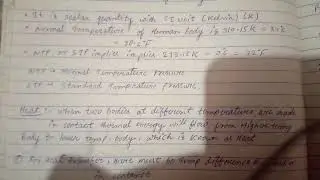 • It is scalar quantity with SI unit (Kelvin) (K)
• Normal Temperature of Human body is 310.15K = 37°C
= 98.2°F
• NTP or STP implies implies 273.15K = 0°C = 32°F
NTP → Normal Temperature Pressure
STP → Standard Temperature Pressure.
Heat :- when two bodies at different temperatures are made
in contact thermal energy will flow from Higher temp
body to lower temp. body, which is known as Heat
① For Heat transfer, there must be temp difference
in contact